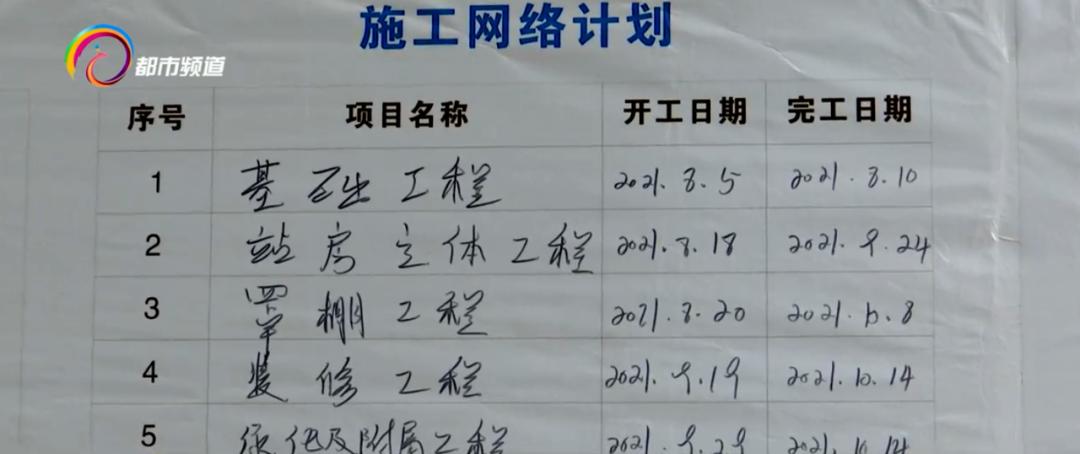 施工网络计划
都市频道
序号 项目名称 开工日期 完工日期
1 基础工程 2021.8.5 2021.8.10
2 站房主体工程 2021.8.18 2021.9.24
3 罩棚工程 2021.8.20 2021.10.8
4 装修工程 2021.9.19 2021.10.14
5 绿化及附属工程 2021.9.29 2021.10.14